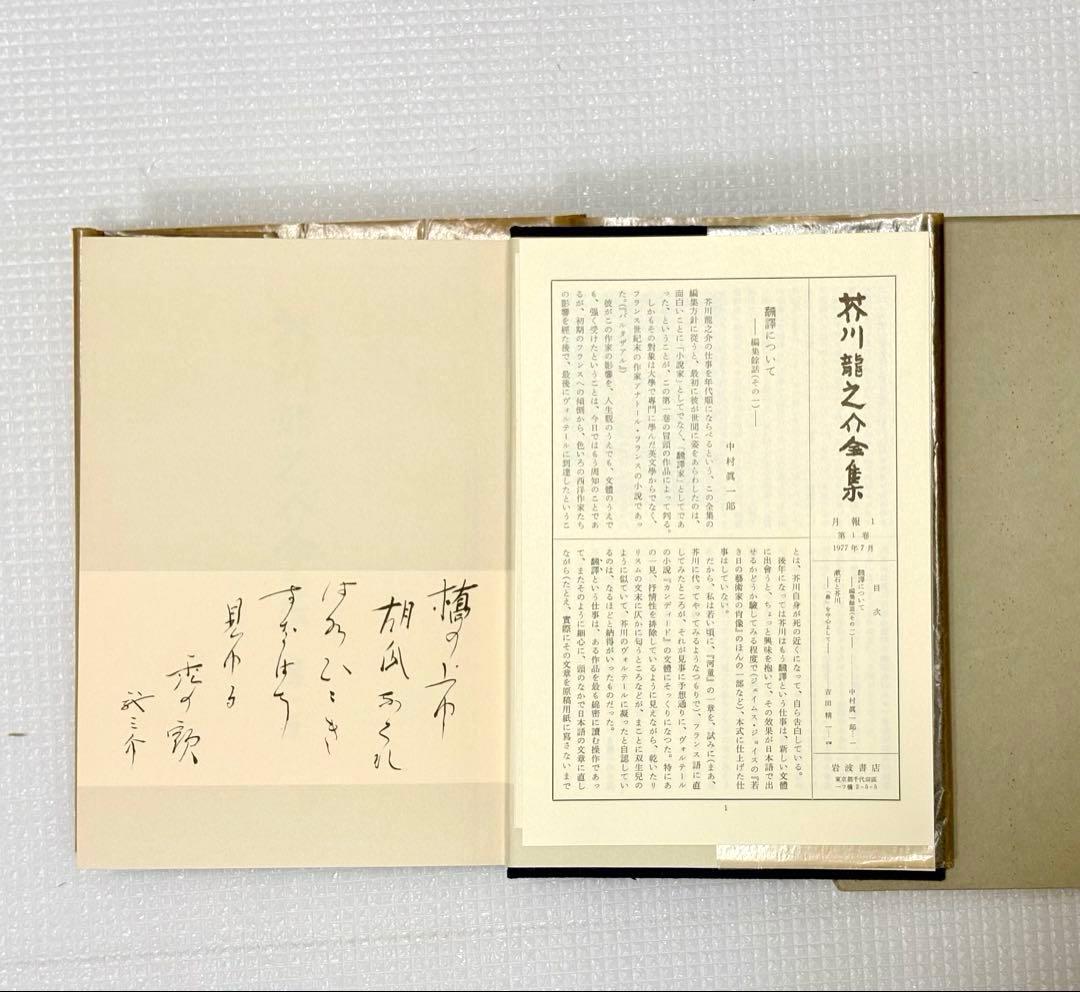 芥川龍之介全集
月報1
第1巻
1977年7月
目次
翻譯について
——編集餘話(その一)—— 中村眞一郎…一
漱石と芥川
——「鼻」を中心として—— 吉田精一…
岩波書店
東京都千代田区
一ツ橋2-5-5
翻譯について
——編集餘話(その一)——
中村眞一郎
芥川龍之介の仕事を年代順にならべるという、この全集の
編集方針に従うと、最初に彼が世間に姿をあらわしたのは、
面白いことに「小説家」としてでなく、「翻譯家」としてであ
った、ということが、この第一巻の冒頭の作品によって判る。
しかもその對象は大學で專門に學んだ英文學からでなく、
フランス世紀末の作家アナトール・フランスの小説であっ
た。(『バルタザアル』)
彼がこの作家の影響を、人生觀のうえでも、文體のうえで
も、強く受けたということは、今日ではもう周知のことであ
るが、初期のフランスへの傾倒から、色いろの西洋作家たち
の影響を經た後で、最後にヴォルテールに到達したというこ
とは、芥川自身が死の近くになって、自ら告白している。
後年になっては芥川はもう翻譯という仕事は、新しい文體
に出會うと、ちょっと興味を抱いて、その效果が日本語で出
せるかどうか驗してみる程度で(ジェイムス・ジョイスの『若
き日の藝術家の肖像』のほんの一部など)、本式に仕上げた仕
事はしていない。
だから、私は若い頃に、『河童』の一章を、試みに(まあ、
芥川に代ってやってみるようなつもりで)、フランス語に直
してみたところが、それが見事に予想通りに、ヴォルテール
の小説『カンディード』の文體にそっくりになった。特にあ
の一見、抒情性を排除しているように見えながら、乾いたリ
リスムの文末に仄かに匂うところなどが、まことに双生兒の
ように似ていて、芥川のヴォルテールに凝ったと自認してい
るのは、なるほどと納得がいったものだった。
翻譯という仕事は、ある作品を最も綿密に讀む操作であっ
て、またそのように細心に、頭のなかで日本語の文章に直し
ながら(たとえ、實際にその文章を原稿用紙に寫さないまで
1
橋の上ゆ
胡瓜なくれ
は水ひゝき
すなはち
見ゆる
禿の頭
龍之介